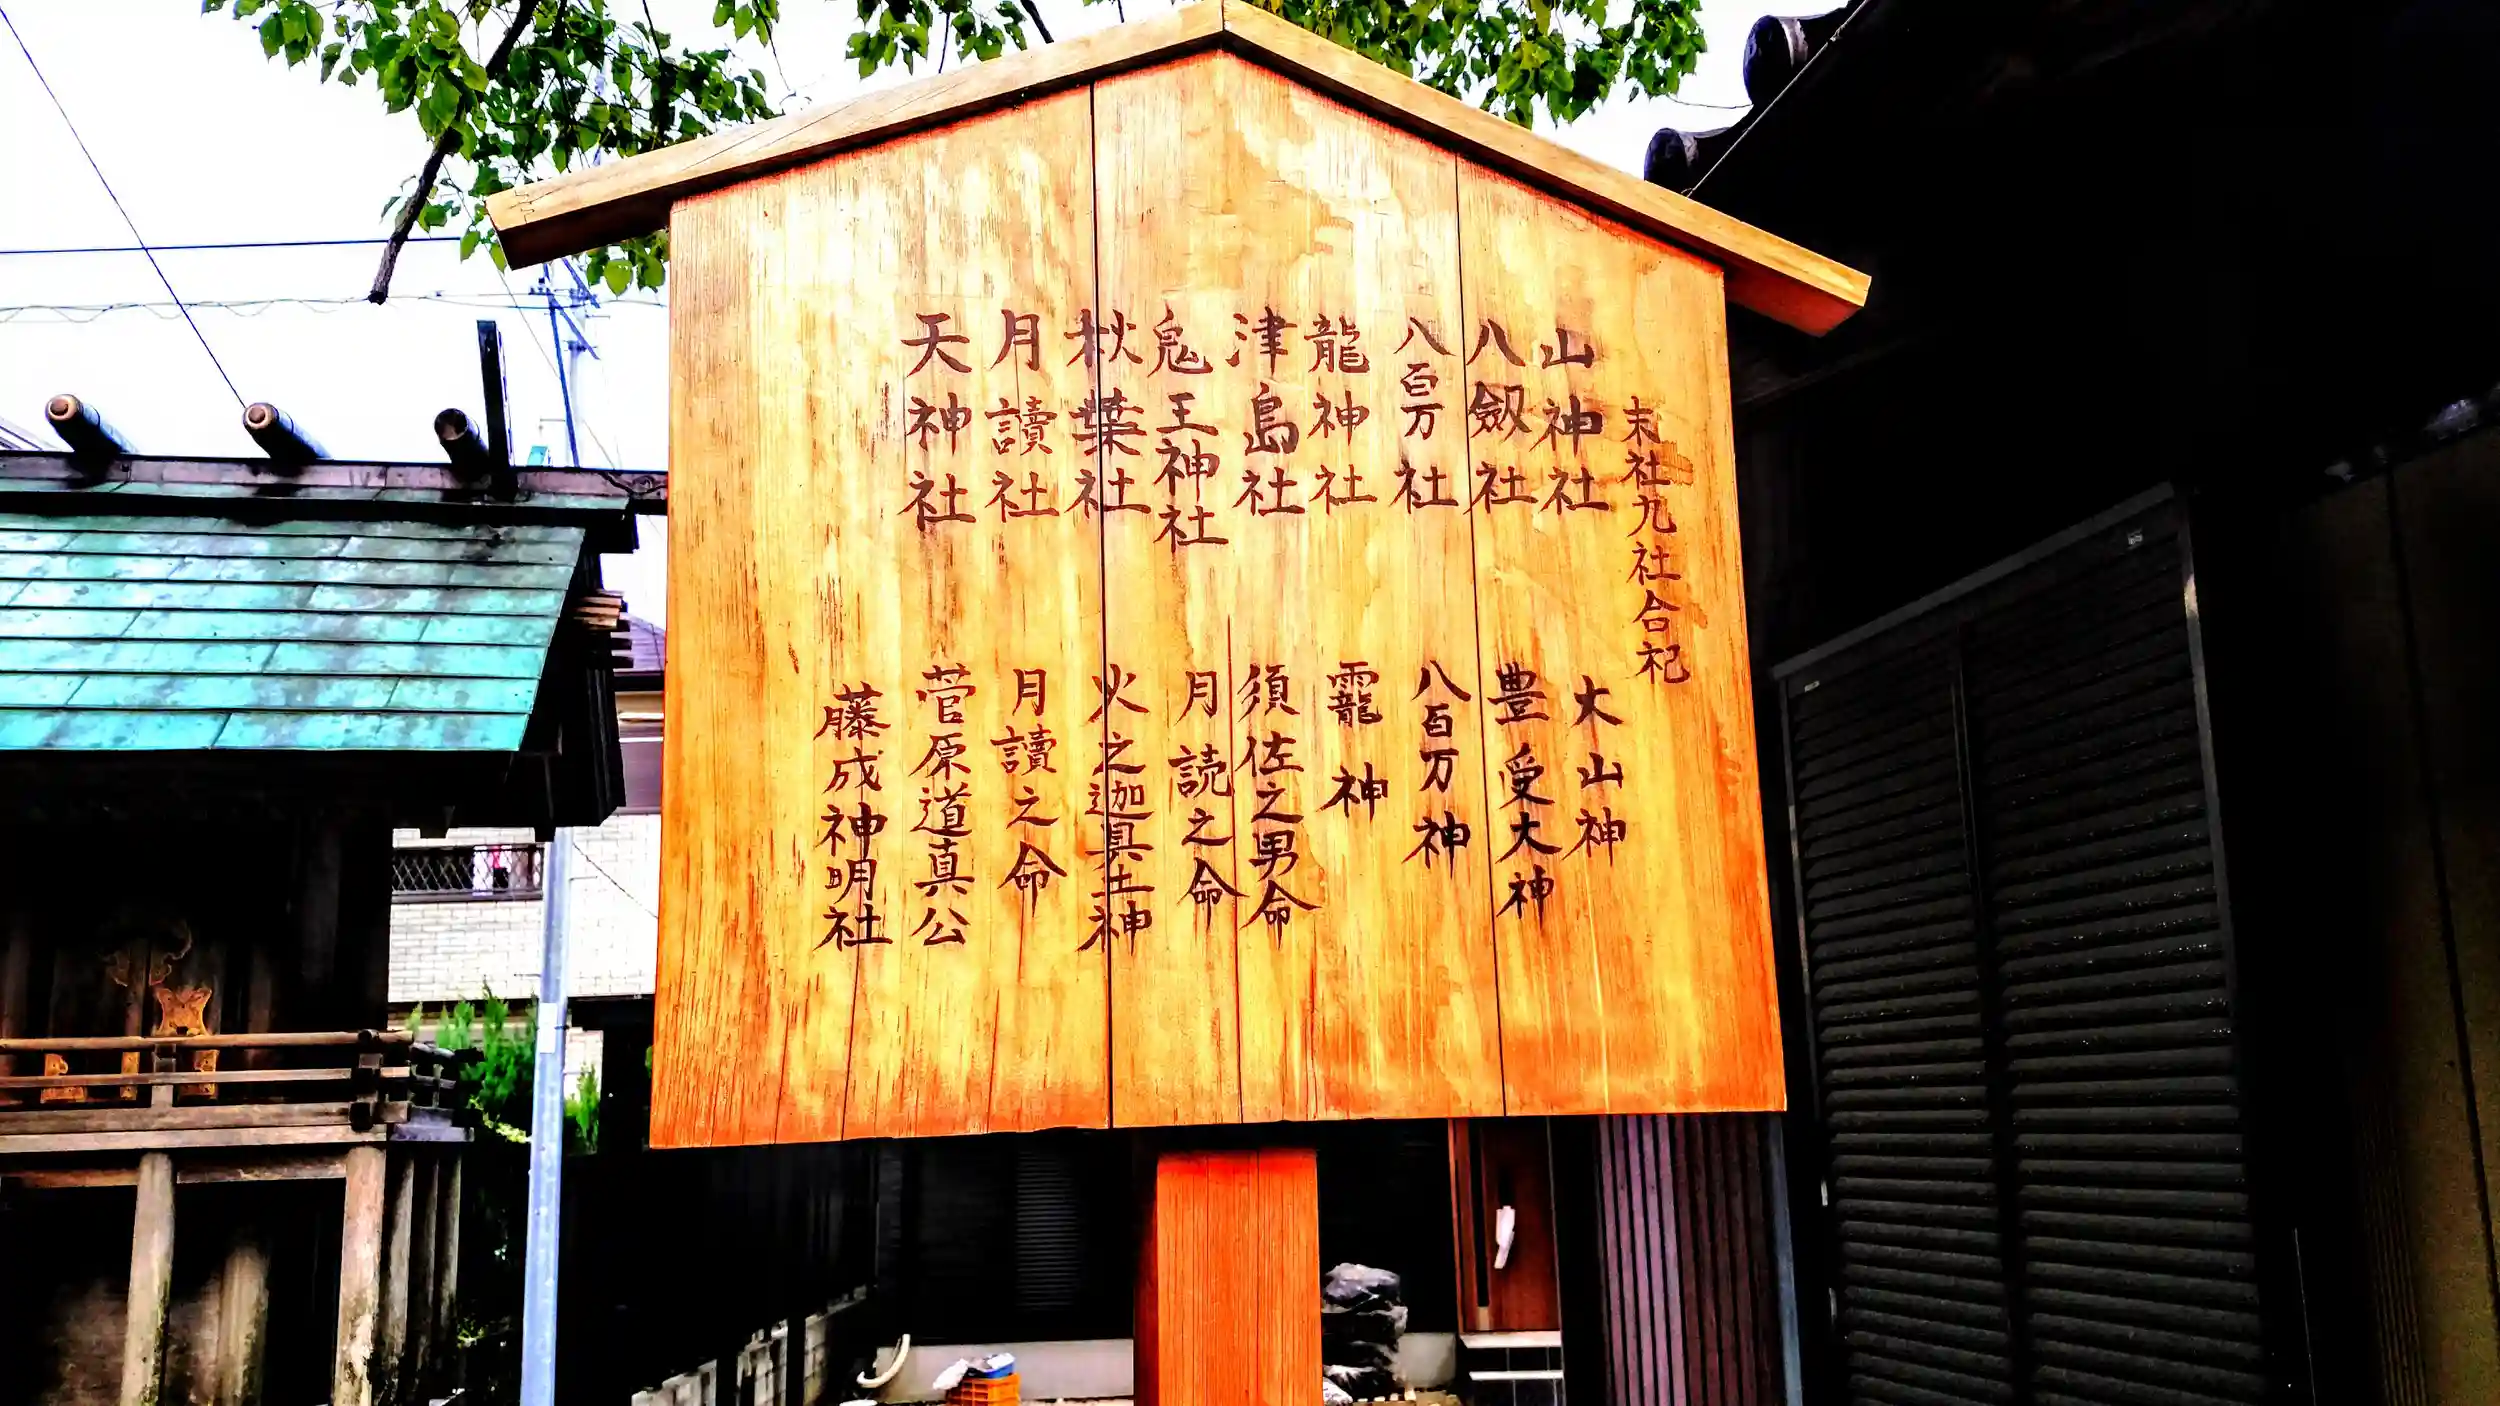 末社九社合祀
山神社 大山神
八劔社 豊受大神
八百万社 八百万神
龍神社 龗神
津島社 須佐之男命
鬼王神社 月読之命
秋葉社 火之迦具土神
月讀社 月讀之命
天神社 菅原道真公
藤成神明社